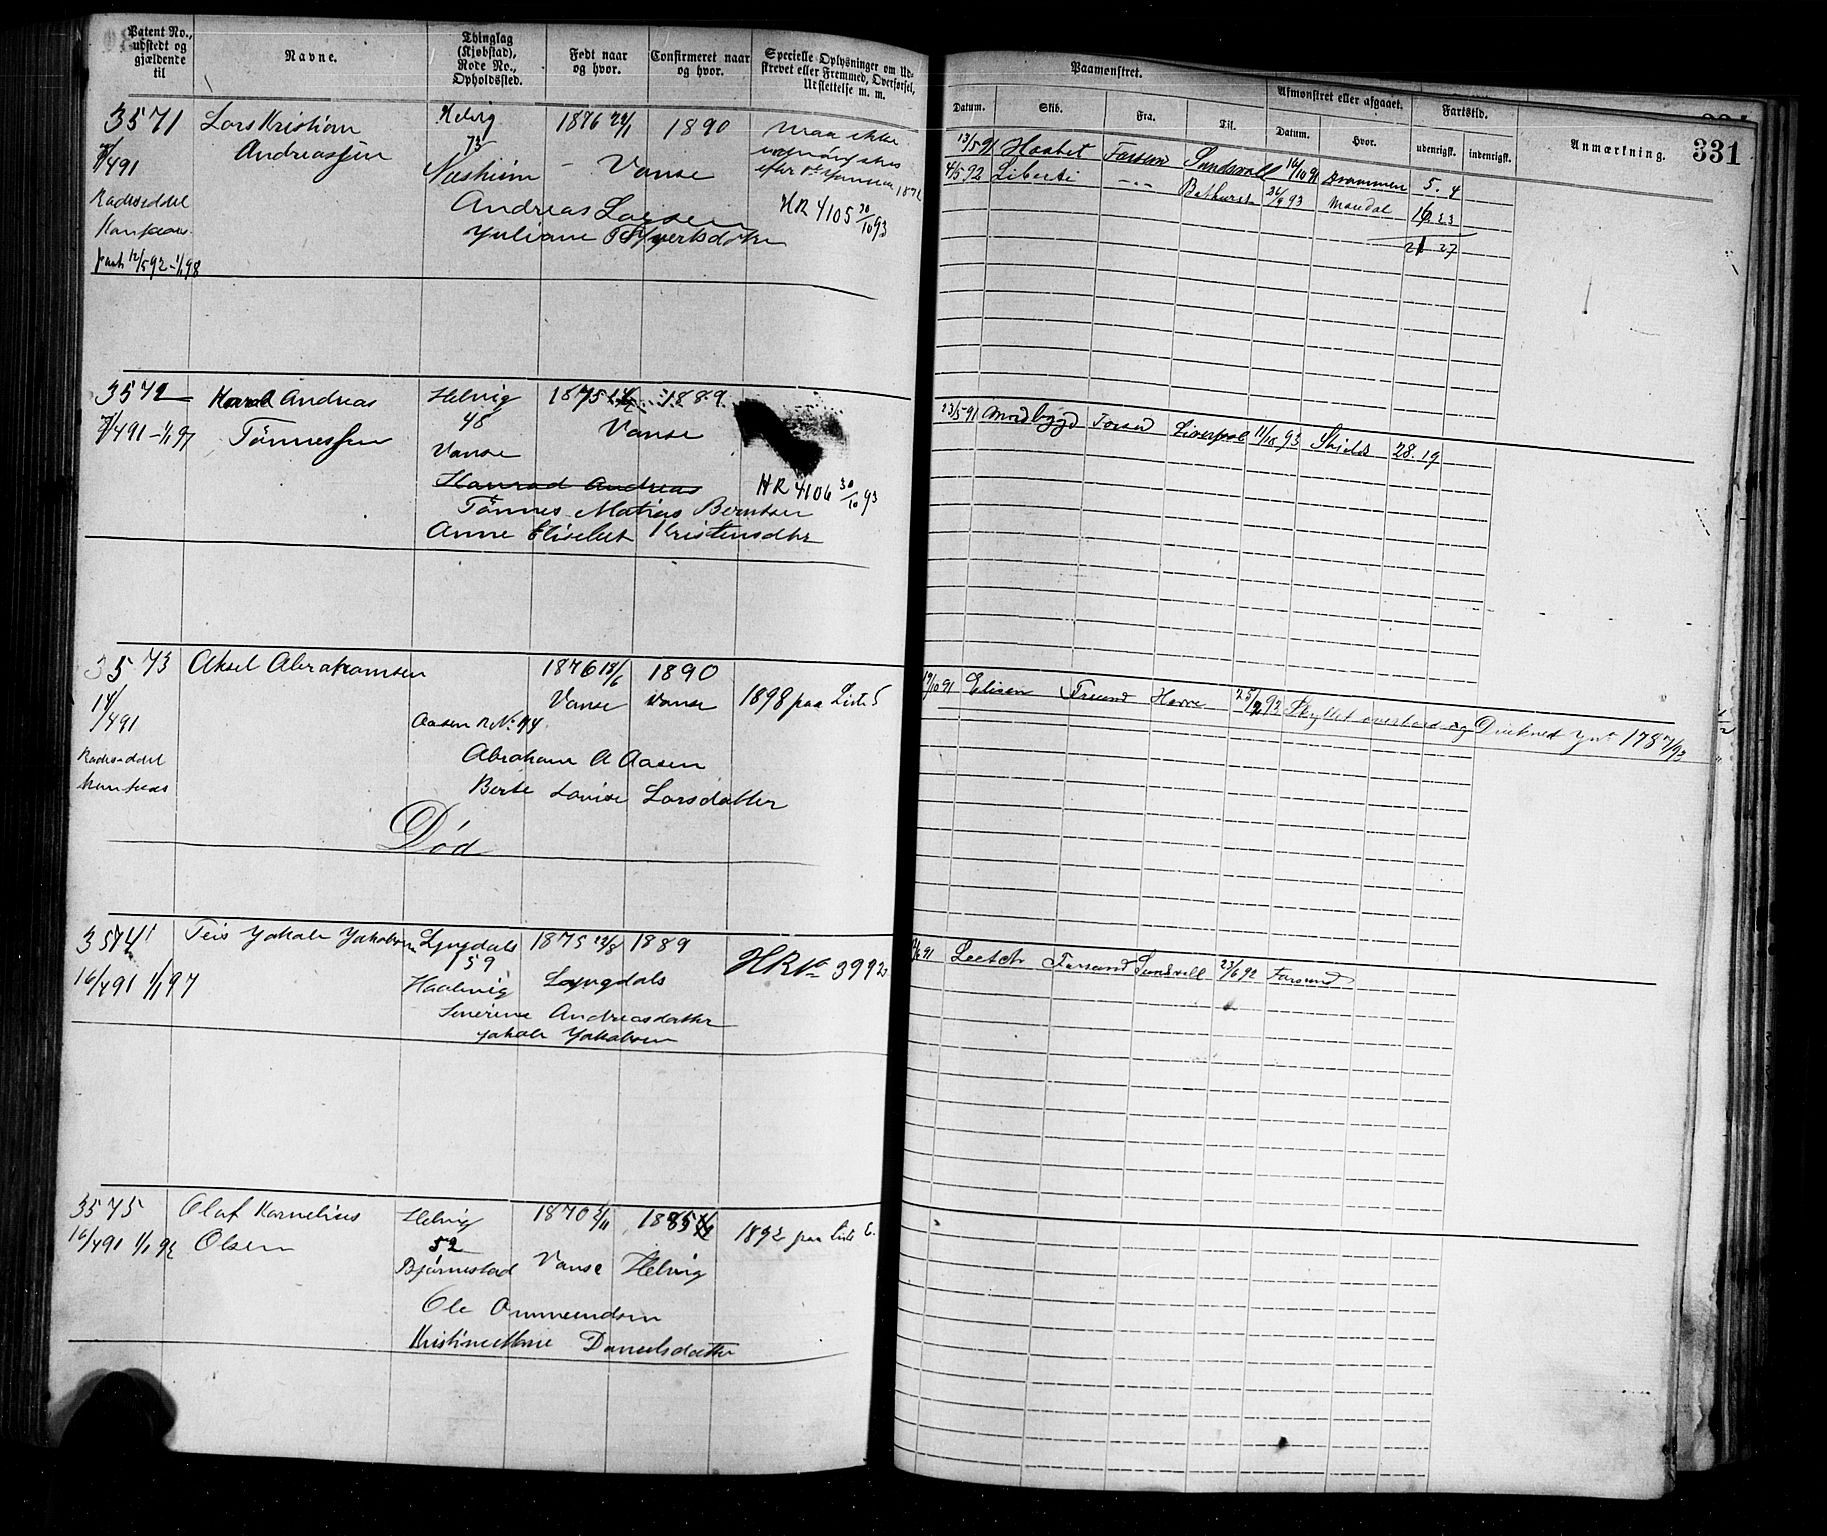 Patent No., udstedt og gjældende til
Navne.
Thinglag (Kjøbstad), Rode No., Opholdssted.
Født naar og hvor.
Confirmeret naar og hvor.
Specielle Oplysninger om Udstrevet eller Fremmed, Overførsel, Udslettelse m. m.
Paamønstret.
Datum.
Skib.
Fra.
Til.
Afmønstret eller afgaaet.
Datum.
Hvor.
Fartstid.
udenrigsk.
indenrigsk.
Anmærkning.
331
3571 Lars Kristian Helvig 1876 24/1 1890 maa ikke
Andreassen 73
Vanse
efter 1892
Radeseddel
Andreas Larsen HR 4105 30/10 93
Juliane
12/5 92 - 1/1 98
13/5 91 Haabet Farsund Sundsvall 16/10 91 Drammen 5. 4
4/5 92 Liberti - - Bathurst 26/9 93 Mandal 16 23
21 27
3572 Karl Andreas Helvig 1875 1889
7/4 91 - 1/1 97 Tønnessen 46 Vanse
Vanse
Konrad Andreas HR 4106 30/10 93
Tønnes Matias Berntsen
Anne Elisebet Kristensdtr
23/5 91 Nordbygd Farsund Liverpool 11/10 93 Shields 28. 19
3573 Aksel Abrahamsen 1876 18/6 1890
14/4 91 Vanse Vanse 1898 paa Liste 5
Aasen R No 94
Radeseddel Abraham A Aasen
Berte Lovise Larsdatter
Død
19/10 91 Elisen Havre 25/2 93 Skyllet overbord og Druknet 178 7/93
3574 Teis Jakob Jakobsen Lyngdals 1875 12/8 1889
16/4 91 1/1 97 159 Lyngdals HR No 3992
Severine Andreasdatter
Jakob Jakobsen
91 Farsund Sundsvall 23/6 92 Farsund
3575 Olaf Kornelius Helvig 1870 2/11 1885
16/4 91 Olsen 52 1892 paa Liste
Bjørnestad Vanse Helvig
Ole Ommundsen
Kristine Marie Danielsdatter